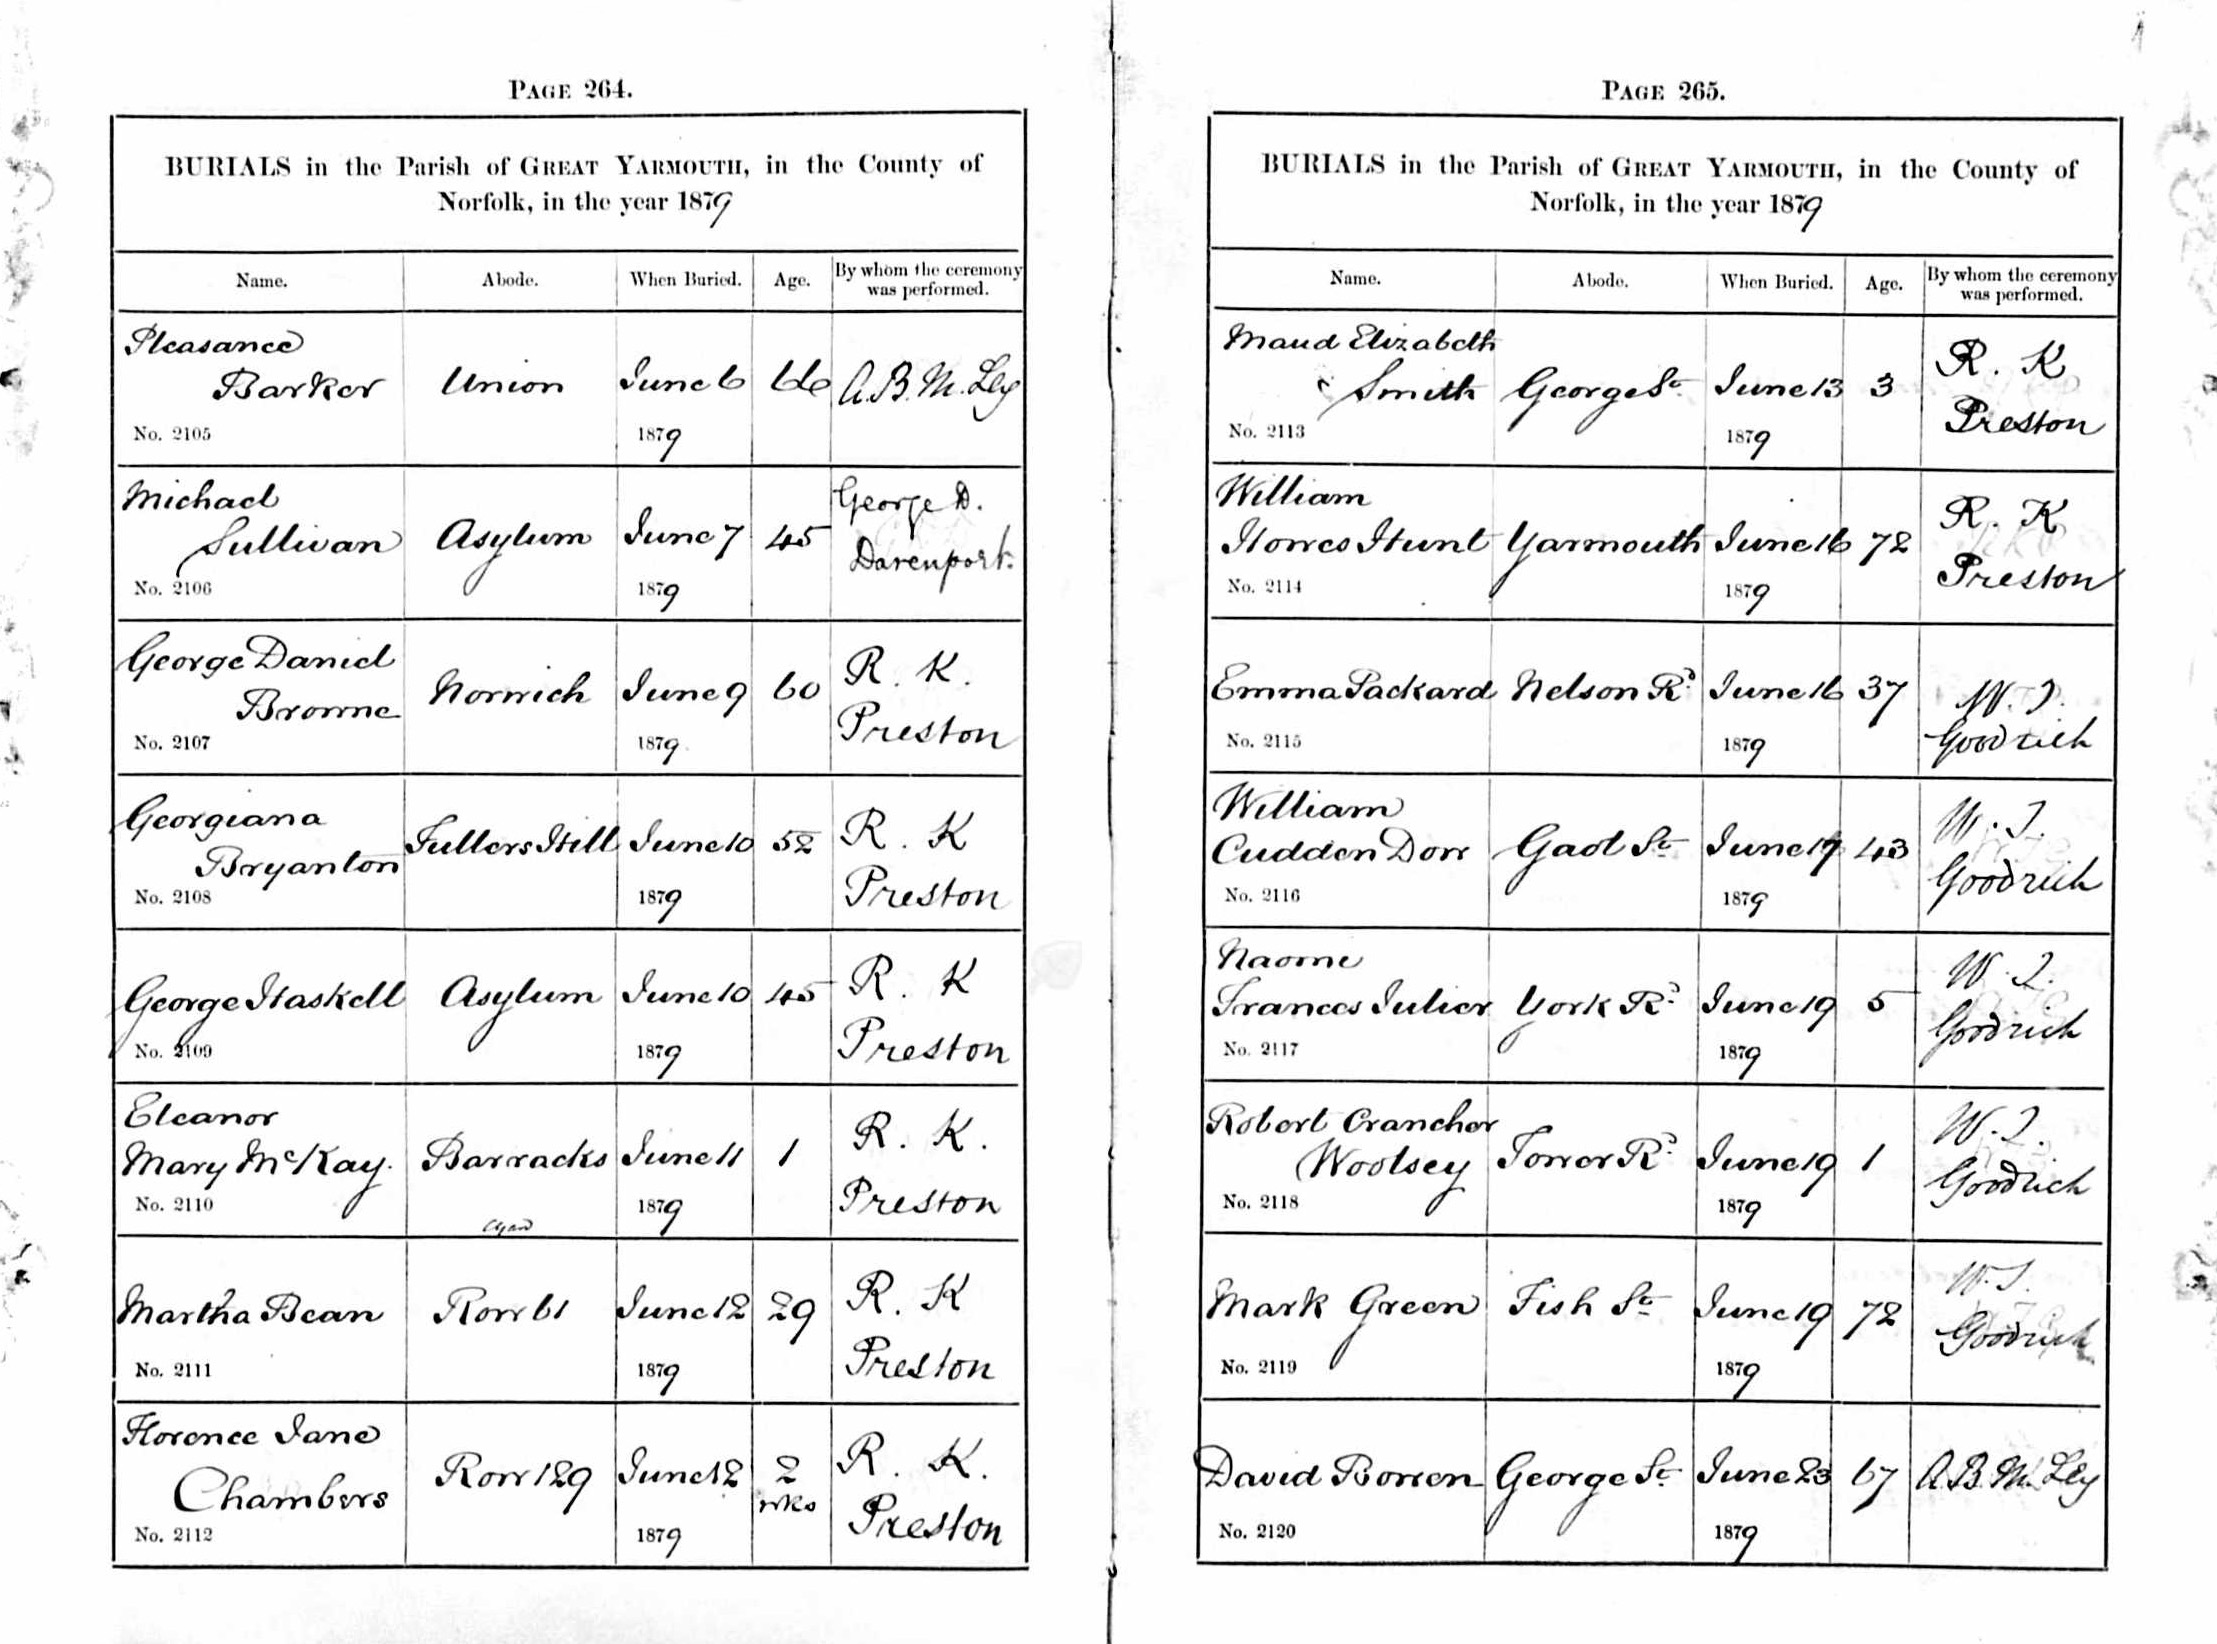 PAGE 264.
BURIALS in the Parish of GREAT YARMOUTH, in the County of
Norfolk, in the year 1879
Name. Abode. When Buried. Age. By whom the ceremony
was performed.
Pleasance
Barker Union June 6 66 A.B.M. Ley
No. 2105 1879
Michael George D.
Sullivan Asylum June 7 45 Davenport.
No. 2106 1879
George Daniel R. K.
Browne Norwich June 9 60 Preston
No. 2107 1879
Georgiana R. K
Bryanton Fullers Hill June 10 52 Preston
No. 2108 1879
R. K
George Haskell Asylum June 10 45 Preston
No. 2109 1879
Eleanor R. K.
Mary McKay. Barracks June 11 1 Preston
No. 2110 1879
R. K
Martha Bean Row 61 June 12 29 Preston
No. 2111 1879
Florence Jane R. K.
Chambers Row 129 June 12 2 wks Preston
No. 2112 1879
PAGE 265.
BURIALS in the Parish of GREAT YARMOUTH, in the County of
Norfolk, in the year 1879
Name. Abode. When Buried. Age. By whom the ceremony
was performed.
Maud Elizabeth R. K
Smith George St June 13 3 Preston
No. 2113 1879
William R. K
Howes Hunt Yarmouth June 16 72 Preston
No. 2114 1879
Emma Packard Nelson Rd June 16 37 W. J.
Goodrich
No. 2115 1879
William W. J.
Cudden Dow Gaol St June 17 43 Goodrich
No. 2116 1879
Naome W. J.
Frances Julier York Rd June 19 5 Goodrich
No. 2117 1879
Robert Crancher W. J.
Woolsey Tower Rd June 19 1 Goodrich
No. 2118 1879
W. J.
Mark Green Fish St June 19 72 Goodrich
No. 2119 1879
David Bowen George St June 23 67 A.B.M. Ley
No. 2120 1879